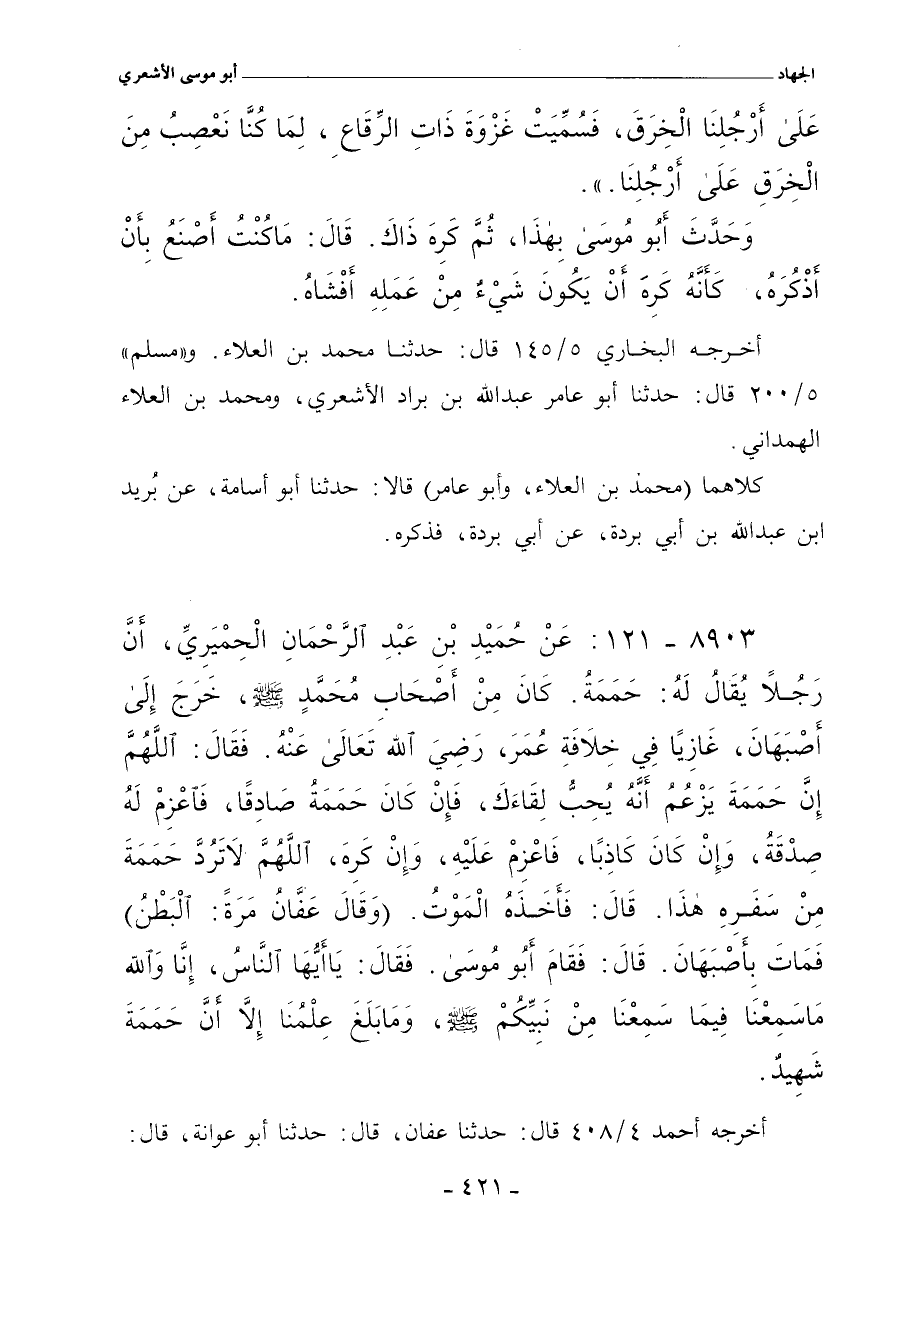 الجهاد ــــــــــــــــــــ أبو موسى الأشعري
عَلَىٰ أَرْجُلِنَا الْخِرَقَ، فَسُمِّيَتْ غَزْوَةَ ذَاتِ الرِّقَاعِ ، لِمَا كُنَّا نَعْصِبُ مِنَ
الْخِرَقِ عَلَىٰ أَرْجُلِنَا.».
وَحَدَّثَ أَبُو مُوسَىٰ بِهٰذَا، ثُمَّ كَرِهَ ذَاكَ. قَالَ: مَاكُنْتُ أَصْنَعُ بِأَنْ
أَذْكُرَهُ، كَأَنَّهُ كَرِهَ أَنْ يَكُونَ شَيْءٌ مِنْ عَمَلِهِ أَفْشَاهُ.
أخرجه البخاري ١٤٥/٥ قال: حدثنا محمد بن العلاء. و«مسلم»
٢٠٠/٥ قال: حدثنا أبو عامر عبدالله بن براد الأشعري، ومحمد بن العلاء
الهمداني.
كلاهما (محمد بن العلاء، وأبو عامر) قالا: حدثنا أبو أسامة، عن بُريد
ابن عبدالله بن أبي بردة، عن أبي بردة، فذكره.
٨٩٠٣ - ١٢١: عَنْ حُمَيْدِ بْنِ عَبْدِ ٱلرَّحْمَانِ الْحِمْيَرِيِّ، أَنَّ
رَجُلًا يُقَالُ لَهُ: حَمَمَةُ. كَانَ مِنْ أَصْحَابِ مُحَمَّدٍ ﷺ، خَرَجَ إِلَىٰ
أَصْبَهَانَ، غَازِيًا فِي خِلَافَةِ عُمَرَ، رَضِيَ ٱلله تَعَالَىٰ عَنْهُ. فَقَالَ: ٱللَّهُمَّ
إِنَّ حَمَمَةَ يَزْعُمُ أَنَّهُ يُحِبُّ لِقَاءَكَ، فَإِنْ كَانَ حَمَمَةُ صَادِقًا، فَاعْزِمْ لَهُ
صِدْقَهُ، وَإِنْ كَانَ كَاذِبًا، فَاعْزِمْ عَلَيْهِ، وَإِنْ كَرِهَ، ٱللَّهُمَّ لَاتَرُدَّ حَمَمَةَ
مِنْ سَفَرِهِ هٰذَا. قَالَ: فَأَخَذَهُ الْمَوْتُ. (وَقَالَ عَفَّانُ مَرَةً: ٱلْبَطْنُ)
فَمَاتَ بِأَصْبَهَانَ. قَالَ: فَقَامَ أَبُو مُوسَىٰ. فَقَالَ: يَاأَيُّهَا ٱلنَّاسُ، إِنَّا وَٱلله
مَاسَمِعْنَا فِيمَا سَمِعْنَا مِنْ نَبِيِّكُمْ ﷺ، وَمَابَلَغَ عِلْمُنَا إِلَّا أَنَّ حَمَمَةَ
شَهِيدٌ.
أخرجه أحمد ٤٠٨/٤ قال: حدثنا عفان، قال: حدثنا أبو عوانة، قال:
- ٤٢١ -